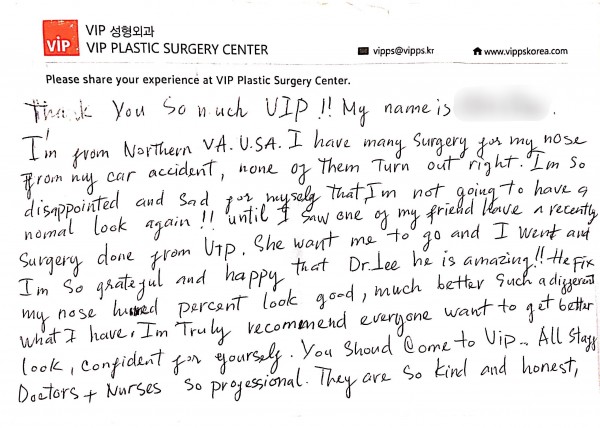 VIP 성형외과
VIP VIP PLASTIC SURGERY CENTER
vipps@vipps.kr
www.vippskorea.com
Please share your experience at VIP Plastic Surgery Center.
Thank You So much VIP!! My name is
I'm from Northern VA. U.S.A. I have many Surgery for my nose
from my car accident, none of them Turn out right. I'm So
disappointed and Sad for myself that I'm not going to have a
nomal look again!! until I saw one of my friend have a recently
Surgery done from VIP. She want me to go and I went and
I'm So grateful and happy that Dr. Lee he is amazing!! He Fix
my nose hundred percent look good, much better Such a different
what I have, I'm Truly recommend everyone want to get better
look, confident for yourself. You Shoud Come to Vip... All Staff
Doctors + Nurses So professional. They are So Kind and honest,